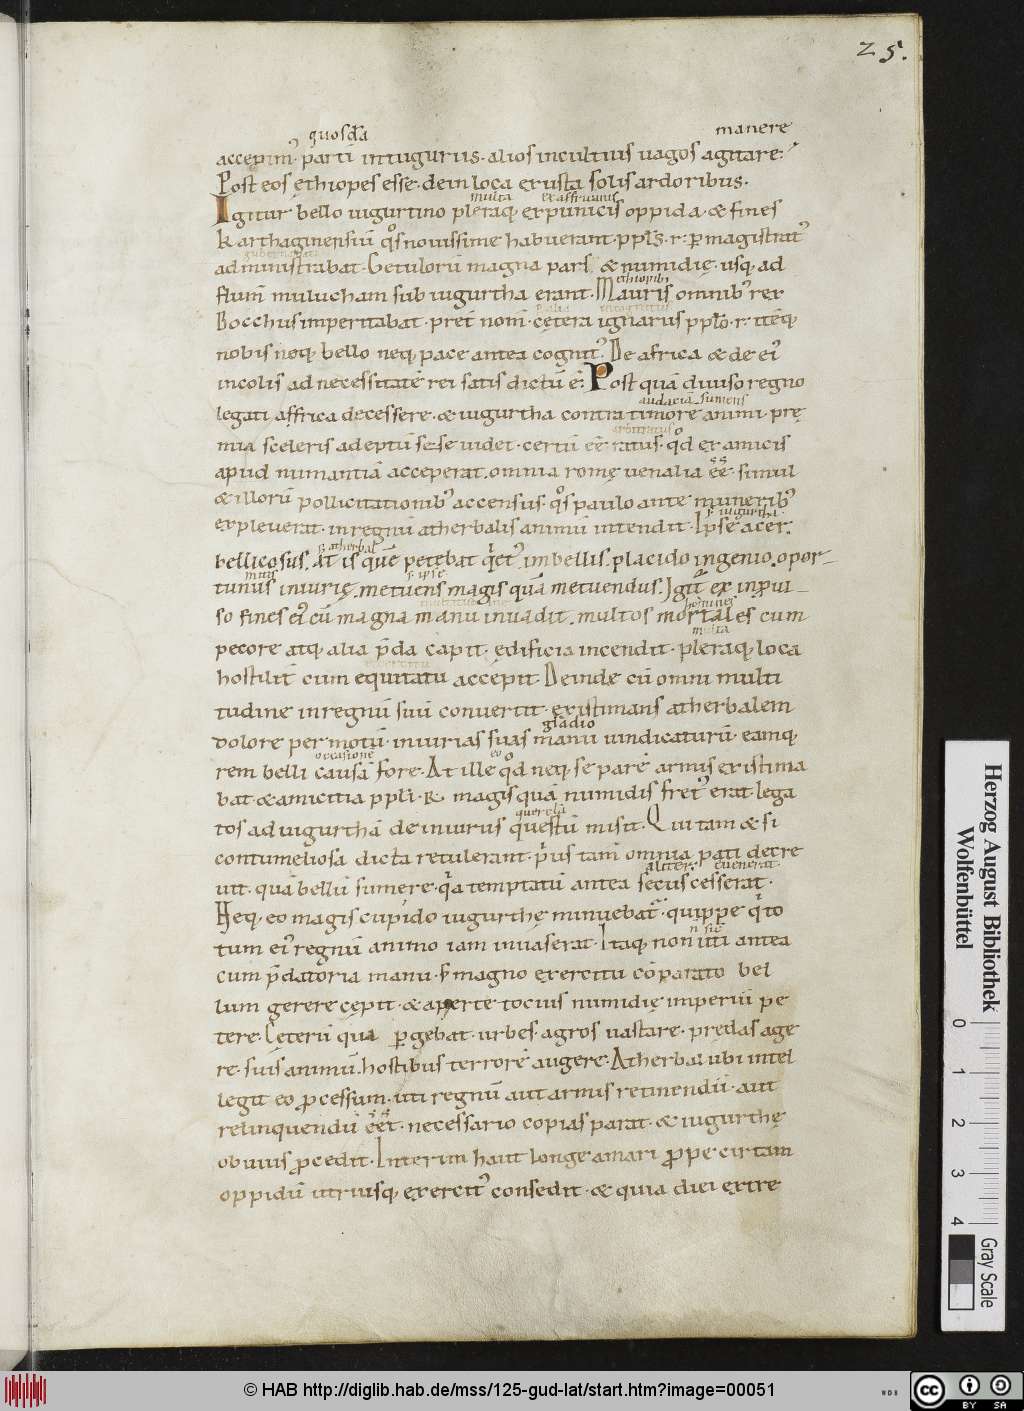 25.
quosdā manere
accepim᷒· partī in tuguriis· alios incultius uagos agitare·
Post eos ęthiopes esse· dein loca exusta solis ardoribus·
multa ex affricanis
Igitur bello iugurtino pleraq; ex punicis oppida· & fines
Karthaginensiū q̊s nouissime habuerant· ppl̄s· r· p magistrat᷒
administrabat· Getulorū magna pars & numidię· usq; ad
flum̄ mulucham sub iugurtha erant· Mauris omnib᷒ rex
Bocchus imperitabat· pret̄ nom̄· cętera ignarus ppl̄o· r· itēq;
nobis neq; bello neq; pace antea cognit᷒· De africa & de ei᷒
incolis ad necessitatē rei satis dictū ē· Post quā diuiso regno
audacia sumens
legati affrica decessere· & iugurtha contra timore animi· prę
mia sceleris adeptū sese uidet· certū eē ratus· qd̊ ex amicis
apud numantiā acceperat· omnia romę uenalia eē· simul
& illorū pollicitationib᷒ accensus· q̊s paulo ante munerib᷒
s· iugurtha
expleuerat· in regnū atherbalis animū intendit· Ipse acer·
s· atherbal
bellicosus· At is quē petebat q̇et᷒ imbellis· placido ingenio· opor-
mitis s· ipse
tunus iniurię· metuens magis quā metuendus· Igit̄ ex inpui-
homines
so fines ei᷒ cū magna manu inuadit· multos mortales cum
multa
pecore atq; alia p̄da capit· ędificia incendit· pleraq; loca
hostilit̄ cum equitatu accepit· Deinde cū omni multi
tudine in regnū suū conuertit· existimans atherbalem
gladio
dolore permotū· iniurias suas manu uindicaturū· eamq;
occasionē eo
rem belli causā fore· At ille qd̊ neq; se parē armis existima
bat· & amicitia ppl̄i· R· magis quā numidis fret᷒ erat· lega
querelā
tos ad iugurthā de iniuriis questū misit· Qui tam & si
contumeliosa dicta retulerant· p̍us tam̄ omnia pati decre
aliter euenerat
uit· quā bellū sumere· q̇a temptatū antea secus cesserat·
Neq; eo magis cupido iugurthę minuebat᷒· quippe q̇ to
n̄ sic
tum ei᷒ regnū animo iam inuaserat· Itaq; non uti antea
cum p̄datoria manu· s; magno exercitu cōparato bel
lum gerere cępit· & aperte tocius numidię imperiū pe
tere· Ceterū qua pgebat· urbes· agros uastare· predas age
re· suis animū· hostibus terrorē augere· Atherbal ubi intel
legit eo pcessum· uti regnū aut armis retinendū· aut
relinquendū eēt· necessario copias parat· & iugurthę
obuius pcedit· Interim haut longe a mari ppe cirtam
oppidū utriusq; exercit᷒ consedit· & quia diei extre
Herzog August Bibliothek
Wolfenbüttel
0 1 2 3 4
Gray Scale
© HAB http://diglib.hab.de/mss/125-gud-lat/start.htm?image=00051
WDB
cc BY SA